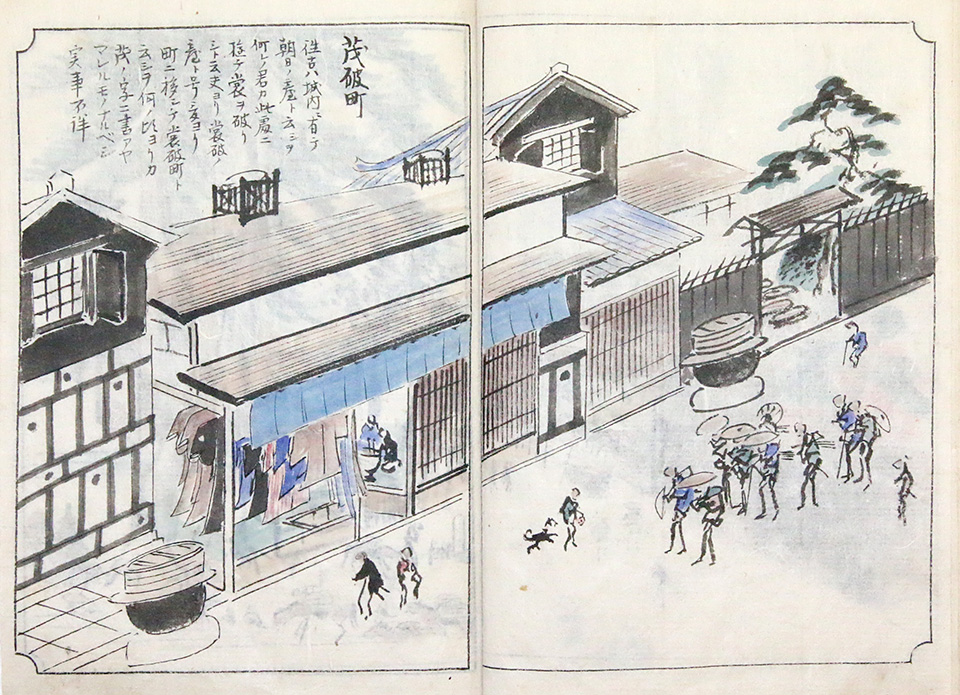 茂破町
往古ハ城内ニ有テ
朝日ノ臺ト云シヲ
何レノ君カ此處ニ
於テ裳ヲ破リ
シト云夫ヨリ裳破ノ
臺ト号シ夫ヨリ
町ニ移シテ裳破町ト
云シヲ何ノ比ヨリカ
茂ノ字ニ書アヤ
マレルモノナルベシ
実事不詳